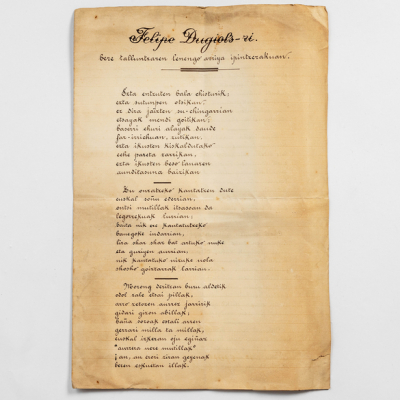 Felipe Dugiols-ri.
bere talluntzaren lenengo arriya ipintzerakuan.
Ezta entzuten bala chisturik;
ezta sutunpen otsikan:
er dira jaizten su-chingarrian
etsayak mendi goitikan;
baserri churi alayak daude
far-irrichuan, zutikan,
ezta ikusten kiskaldutako
eche pareta zarrikan,
ezta ikusten beso lanaren
aunditasuna baizikan
Zu onratzeko kantatzen dute
euskal soñu ederrian,
ontsi mutillak itsasoan da
legorrekuak lurrian;
baita nik ere kantatutzeko
banegoke indarrian,
lira zhar zhar bat artuko nuke
eta guziyen aurrian,
nik kantatuko nizuke nola
zhosho goiztarrak larrian.
Morong deritzan buru aldetik
odol zale etsai pillak,
arro zetozen aurrez jarririk
gidari giron abillak,
baña zorrak ostali arren
gerrari milla ta millak,
euskal izkeran oju egiñaz
"aurrera nere mutillak"
jan, an erori ziran geyenak
beren eskuetan illak.